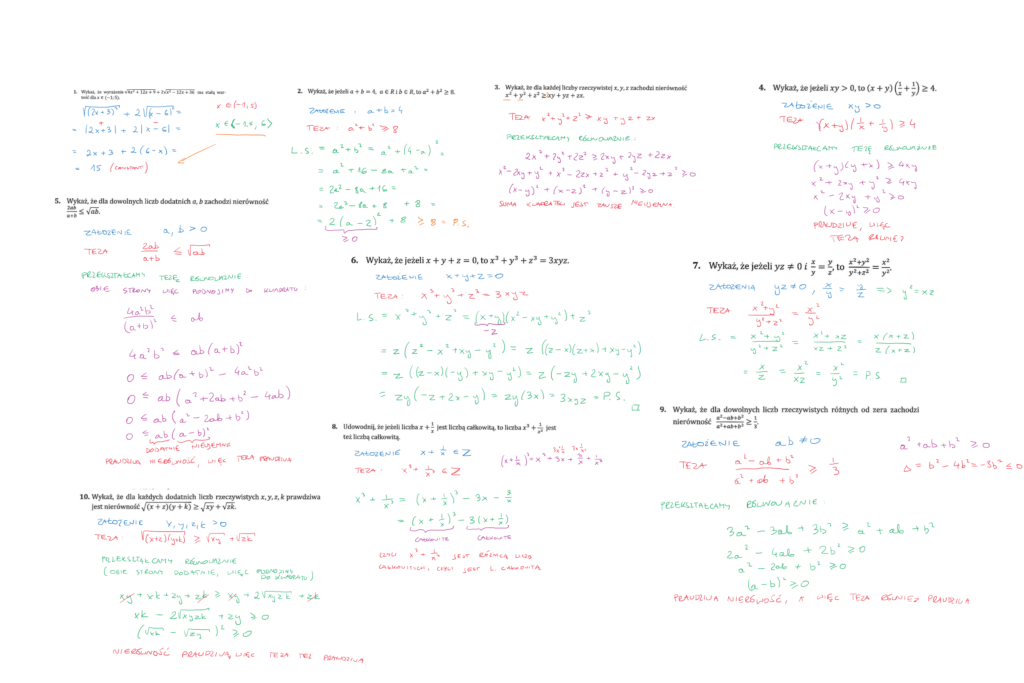 1. Wykaż, że wyrażenie √4x² + 12x + 9 + 2√x² − 12x + 36 ma stałą war-
tość dla x ∈ (−1; 5).
√(2x+3)² + 2√(x−6)² =
= |2x+3| + 2|x−6| =
= 2x+3 + 2(6−x) =
= 15 (CONSTANT)
x ∈ (−1, 5)
2. Wykaż, że jeżeli a + b = 4, a ∈ R i b ∈ R, to a² + b² ≥ 8.
ZAŁOŻENIE : a+b=4
TEZA : a²+b² ≥ 8
L.S. = a²+b² = a²+(4−a)² =
= a² + 16 − 8a + a² =
= 2a² − 8a + 16 =
= 2a² − 8a + 8 + 8 =
= 2(a−2)² + 8 ≥ 8 = P.S.
≥ 0
3. Wykaż, że dla każdej liczby rzeczywistej x, y, z zachodzi nierówność
x² + y² + z² ≥ xy + yz + zx.
TEZA x²+y²+z² ≥ xy + yz + zx
PRZEKSZTAŁCAMY RÓWNOWAŻNIE :
2x² + 2y² + 2z² ≥ 2xy + 2yz + 2zx
x²−2xy+y² + x² − 2zx + z² + y² − 2yz + z² ≥ 0
(x−y)² + (x−z)² + (y−z)² ≥ 0
SUMA KWADRATÓW JEST ZAWSZE NIEUJEMNA
4. Wykaż, że jeżeli xy > 0, to (x + y)(1/x + 1/y) ≥ 4.
ZAŁOŻENIE xy > 0
TEZA (x+y)(1/x + 1/y) ≥ 4
PRZEKSZTAŁCAMY TEZĘ RÓWNOWAŻNIE
(x+y)(y+x) ≥ 4xy
x² + 2xy + y² ≥ 4xy
x² − 2xy + y² ≥ 0
(x−y)² ≥ 0
PRAWDZIWE, WIĘC
TEZA RÓWNIEŻ
5. Wykaż, że dla dowolnych liczb dodatnich a, b zachodzi nierówność
2ab/(a+b) ≤ √ab.
ZAŁOŻENIE a, b > 0
TEZA 2ab/(a+b) ≤ √ab
PRZEKSZTAŁCAMY TEZĘ RÓWNOWAŻNIE
OBIE STRONY WIĘC PODNOSIMY DO KWADRATU :
4a²b²/(a+b)² ≤ ab
4a²b² ≤ ab(a+b)²
0 ≤ ab(a+b)² − 4a²b²
0 ≤ ab(a²+2ab+b² − 4ab)
0 ≤ ab(a² − 2ab + b²)
0 ≤ ab(a−b)²
DODATNIE NIEUJEMNE
PRAWDZIWA NIERÓWNOŚĆ, WIĘC TEZA PRAWDZIWA
6. Wykaż, że jeżeli x + y + z = 0, to x³ + y³ + z³ = 3xyz.
ZAŁOŻENIE x+y+z=0
TEZA : x³+y³+z³ = 3xyz
L.S. = x³+y³+z³ = (x+y)(x²−xy+y²)+z³
−z
= z(z²−x²+xy−y²) = z((z−x)(z+x)+xy−y²)
= z((z−x)(−y) + xy − y²) = z(−zy + 2xy − y²)
= zy(−z + 2x − y) = zy(3x) = 3xyz = P.S.
7. Wykaż, że jeżeli yz ≠ 0 i x/y = y/z, to (x²+y²)/(y²+z²) = x²/y².
ZAŁOŻENIA yz≠0, x/y = y/z => y²=xz
TEZA (x²+y²)/(y²+z²) = x²/y²
L.S. = (x²+y²)/(y²+z²) = (x²+xz)/(xz+z²) = x(x+z)/z(x+z)
= x/z = x²/xz = x²/y² = P.S
8. Udowodnij, że jeżeli liczba x + 1/x jest liczbą całkowitą, to liczba x³ + 1/x³ jest
też liczbą całkowitą.
ZAŁOŻENIE x + 1/x ∈ Z
TEZA : x³ + 1/x³ ∈ Z
(x+1/x)³ = x³ + 3x + 3/x + 1/x³
x³ + 1/x³ = (x + 1/x)³ − 3x − 3/x
= (x + 1/x)³ − 3(x + 1/x)
CAŁKOWITE CAŁKOWITE
CZYLI x³ + 1/x³ JEST RÓŻNICĄ LICZB
CAŁKOWITYCH, CZYLI JEST L. CAŁKOWITĄ
9. Wykaż, że dla dowolnych liczb rzeczywistych różnych od zera zachodzi
nierówność (a²−ab+b²)/(a²+ab+b²) ≥ 1/3.
ZAŁOŻENIE ab ≠ 0
a² + ab + b² ≥ 0
Δ = b² − 4b² = −3b² ≤ 0
TEZA (a² − ab + b²)/(a² + ab + b²) ≥ 1/3
PRZEKSZTAŁCAMY RÓWNOWAŻNIE :
3a² − 3ab + 3b² ≥ a² + ab + b²
2a² − 4ab + 2b² ≥ 0
a² − 2ab + b² ≥ 0
(a−b)² ≥ 0
PRAWDZIWA NIERÓWNOŚĆ, WIĘC TEZA RÓWNIEŻ PRAWDZIWA
10. Wykaż, że dla każdych dodatnich liczb rzeczywistych x, y, z, k prawdziwa
jest nierówność √(x + z)(y + k) ≥ √xy + √zk.
ZAŁOŻENIE x, y, z, k > 0
TEZA : √(x+z)(y+k) ≥ √xy + √zk
PRZEKSZTAŁCAMY RÓWNOWAŻNIE
(OBIE STRONY DODATNIE, WIĘC PODNOSIMY DO KWADRATU)
xy + xk + zy + zk ≥ xy + 2√xyzk + zk
xk − 2√xyzk + zy ≥ 0
(√xk − √zy)² ≥ 0
NIERÓWNOŚĆ PRAWDZIWA, WIĘC TEZA TEŻ PRAWDZIWA